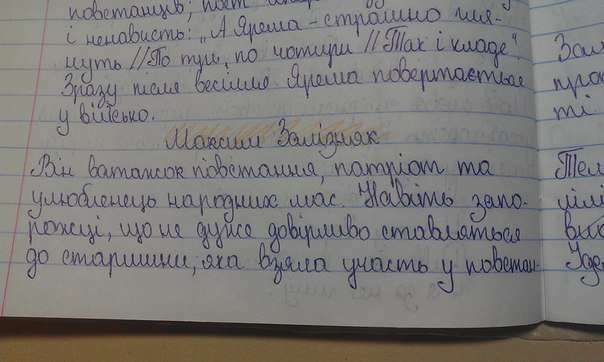 повстанців; поет
і ненависть: „А Ярема – страшно гля-
нуть // По три, по чотири // Так і кладе".
Зразу після весілля Ярема повертається
у військо.
Максим Залізняк
Він ватажок повстання, патріот та
улюбленець народних мас. Навіть запо-
рожці, що не дуже довірливо ставляться
до старшини, яка взяла участь у повстан-